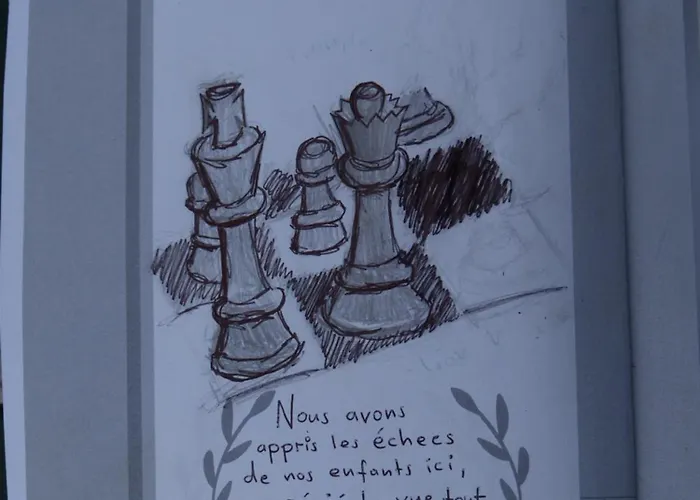 Nous avons
appris les échecs
de nos enfants ici,
vue tout